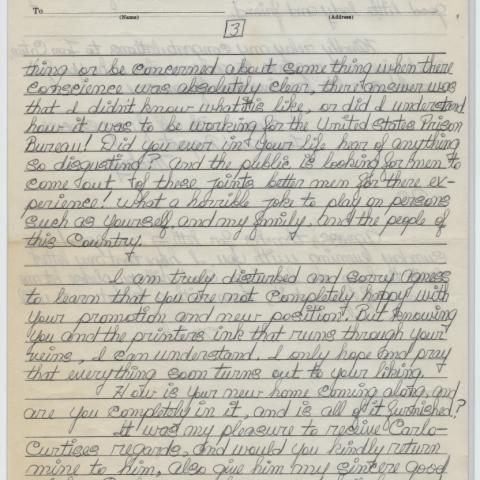 To
(Name) (Address)
3
thing or be concerned about some thing when there
conscience was absolutely clear, their answer was
that I didn't know what this like, or did I understand
how it was to be working for the United States Prison
Bureau! Did you ever in your life hear of anything
so disgusting? And the public is looking for men to
come out of these joints better men for there ex-
perience! What a horrible joke to play on persons
such as yourself, and my family, and the people of
this Country.
I am truly disturbed and sorry Agness
to learn that you are not completely happy with
your promotion and new position. But knowing
you and the printers ink that runs through your
veins, I can understand. I only hope and pray
that everything soon turns out to your liking.
How is your new home coming along, and
are you completely in it, and is all of it furnished?
It was my pleasure to receive Carlo-
Curtises regards, and would you kindly return
mine to him, also give him my sincere good